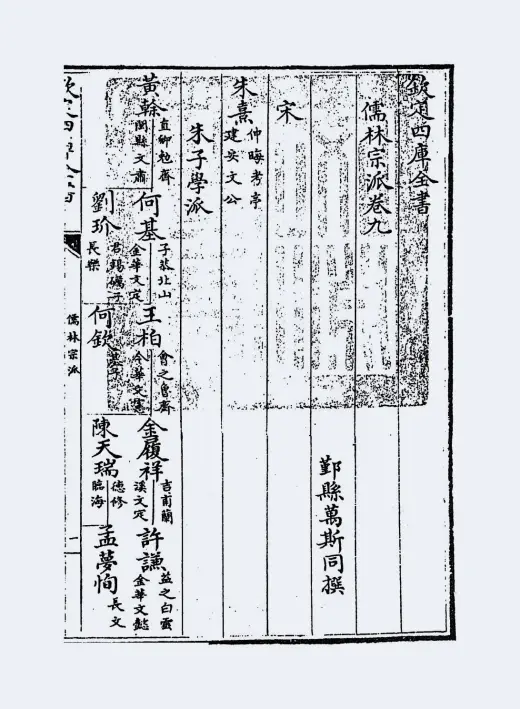 欽定四庫全書
儒林宗派卷九
鄞縣萬斯同撰
宋
朱熹 仲晦考亭 建安文公
朱子學派
黃榦 直卿勉齋 閩縣文肅
何基 子恭北山 金華文定
王柏 會之魯齋 金華文憲
金履祥 吉甫蘭 溪文定
許謙 益之白雲 金華文懿
劉玠 君錫礪子 長樂
何欽 基子
陳天瑞 德修 臨海
孟夢恂 長文
欽定四庫全書
儒林宗派
一